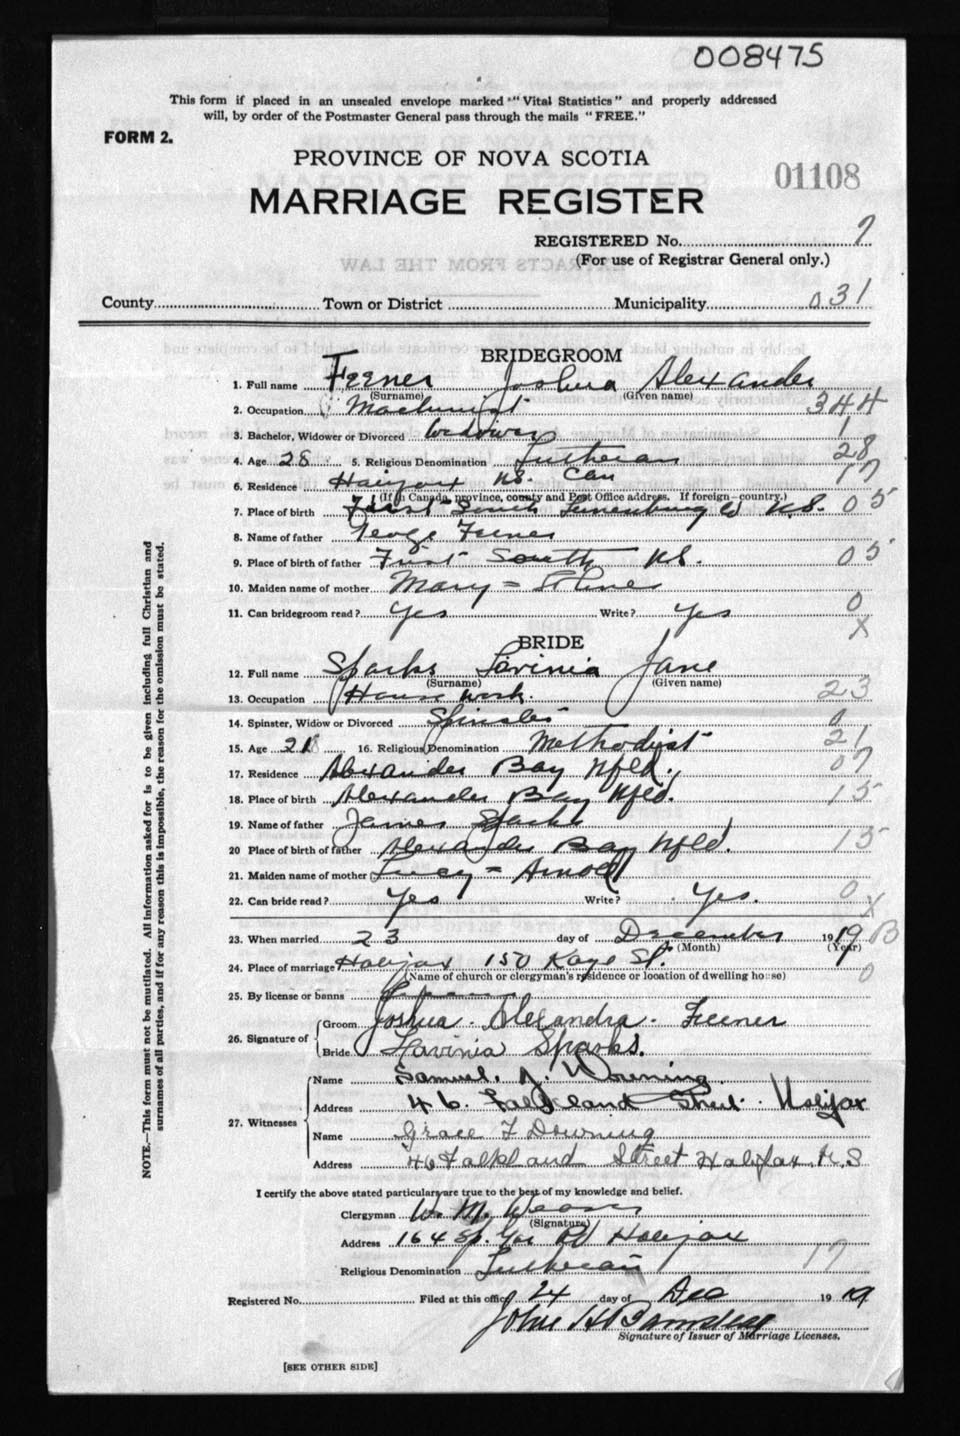 008475
This form if placed in an unsealed envelope marked "Vital Statistics" and properly addressed
will, by order of the Postmaster General pass through the mails "FREE."
FORM 2.
PROVINCE OF NOVA SCOTIA
01108
MARRIAGE REGISTER
REGISTERED No. 7
(For use of Registrar General only.)
County Town or District Municipality 031
BRIDEGROOM
1. Full name Feener Joshua Alexander
(Surname) (Given name)
2. Occupation Machinist 344
3. Bachelor, Widower or Divorced Widower 1
4. Age 28 5. Religious Denomination Lutheran 28
6. Residence Halifax N.S. Can 17
(If in Canada, province, county and Post Office address. If foreign—country.)
7. Place of birth First South Lunenburg Co N.S. 05
8. Name of father George Feener
9. Place of birth of father First South N.S. 05
10. Maiden name of mother Mary =
11. Can bridegroom read? Yes Write? Yes 0
X
BRIDE
12. Full name Sparks Lavinia Jane
(Surname) (Given name)
13. Occupation House work. 23
14. Spinster, Widow or Divorced Spinster 0
15. Age 21 16. Religious Denomination Methodist 21
17. Residence Alexander Bay Nfld. 07
18. Place of birth Alexander Bay Nfld. 15
19. Name of father James Sparks
20 Place of birth of father Alexander Bay Nfld. 15
21. Maiden name of mother Lucy = Arnold
22. Can bride read? Yes Write? Yes. 0
X
23. When married 23 day of December 1919 B
(Month) (Year)
24. Place of marriage Halifax 150 Kaye St. 0
(Name of church or clergyman's residence or location of dwelling house)
25. By license or banns
26. Signature of Groom Joshua. Alexandra. Feener
Bride Lavinia Sparks.
27. Witnesses Name Samuel. J. Downing
Address 46. Falkland Street. Halifax
Name Grace F Downing
Address 46 Falkland Street Halifax, N.S
I certify the above stated particulars are true to the best of my knowledge and belief.
Clergyman W. M. Weaver
(Signature)
Address 164 Sp. Gar Rd Halifax
Religious Denomination Lutheran 17
Registered No. Filed at this office 24 day of Dec 1919
John H
Signature of Issuer of Marriage Licenses.
[SEE OTHER SIDE]
NOTE.—This form must not be mutilated. All information asked for is to be given including full Christian and
surnames of all parties, and if for any reason this is impossible, the reason for the omission must be stated.